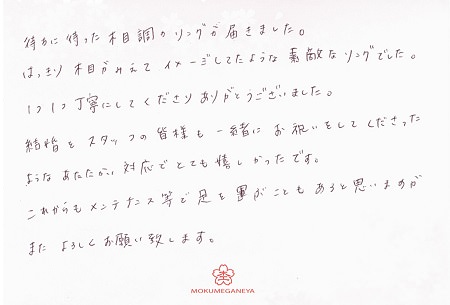 待ちに待った木目調のリングが届きました。
はっきり木目がみえてイメージしてたような素敵なリングでした。
1つ1つ丁寧にしてくださりありがとうございました。
結婚をスタッフの皆様も一緒にお祝いをしてくださった
ようなあたたかい対応でとても嬉しかったです。
これからもメンテナンス等で足を運ぶこともあると思いますが
またよろしくお願い致します。
MOKUMEGANEYA